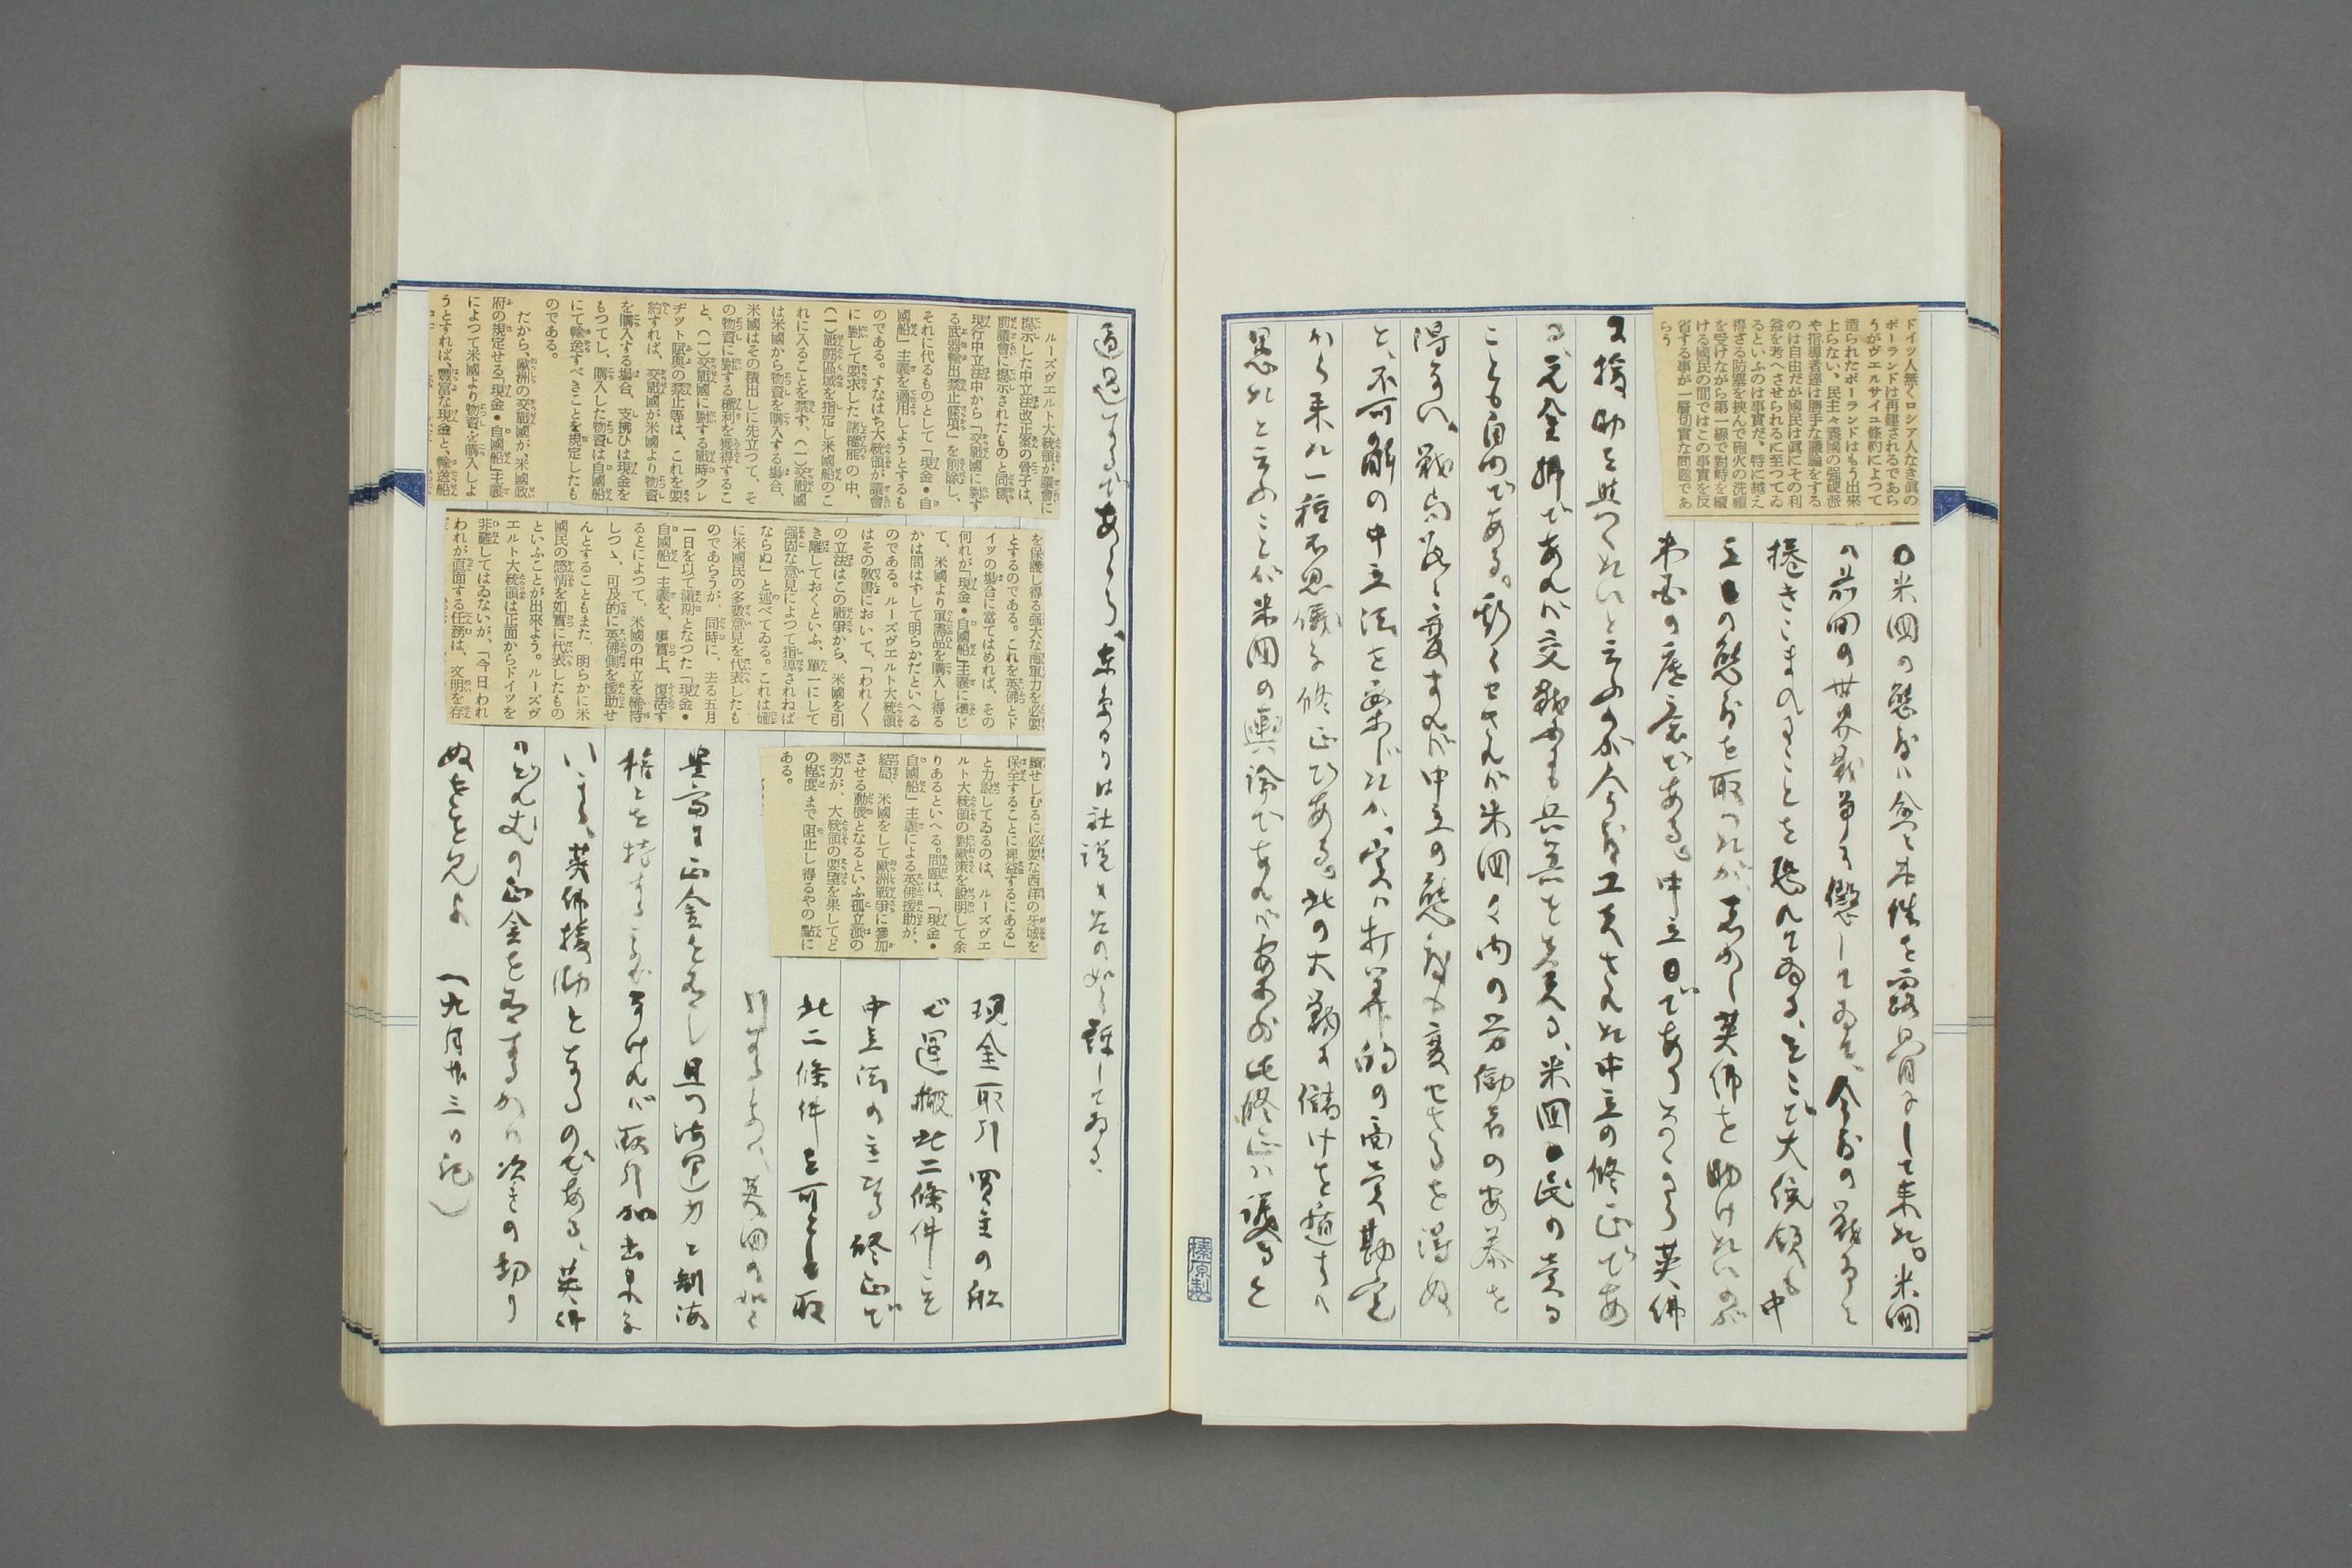 ドイツ人無くロシア人なき眞の
ポーランドは再建されるであら
うがヴエルサイユ條約によつて
造られたポーランドはもう出來
上らない、民主々義國の强硬派
や指導者達は勝手な議論をする
のは自由だが國民は眞にその利
益を考へさせられるに至つてゐ
るといふのは事實だ、特に越え
得ざる防塞を挾んで砲火の洗禮
を受けながら第一線で對峙を續
ける國民の間ではこの事實を反
省する事が一層切實な問題であ
らう
米國の態度は愈々本性を露骨にして来た。米国
の前回の世界戦争に懲してゐる、今度の戦争に
捲きこまれることを恐れてゐる、そこで大統領も中
立の態度を取つたが、若し英佛を助けたいのが
本国の底意である。中立であつては英佛
に援助を與へないと云ふのが今度工夫された中立の修正であ
る、元金拂であれば交戦国にも兵器を売る、米国民の売る
ことも自由である。斯くせざれば米国々内の労働者の安泰を
得ない、戦局段々変ずれば中立の態度も変せざるを得ぬ
と、不可解の中立法を案じたが、実は打算的の商売勘定
から来た一種不思議な修正である。此の大戦に儲けを
愚だと云ふことが米国の輿論であれば
通過するであらう、東日は社説に左の如く評してゐる、
ルーズヴエルト大統領が議會に
提示した中立法改正案の骨子は、
前議會に提示されたものと同樣、
現行中立法中から「交戰國に對す
る武器輸出禁止條項」を削除し、
それに代るものとして「現金・自
國船」主義を適用しようとするも
のである。すなはち大統領が議會
に對して要求した諸權能の中、
(一)戰鬪區域を指定し米國船のこ
れに入ることを禁ず、(一)交戰國
は米國から物資を購入する場合、
米國はその積出しに先立つて、そ
の物資に對する權利を獲得するこ
と、(一)交戰國に對する戰時クレ
ヂツト賦與の禁止等は、これを要
約すれば、交戰國が米國より物資
を購入する場合、支拂ひは現金を
もつてし、購入した物資は自國船
にて輸送すべきことを規定したも
のである。
だから、歐洲の交戰國が、米國政
府の規定せる「現金・自國船」主義
によつて米國より物資を購入しよ
うとすれば、豐富な現金と、輸送船
を保護し得る强大な海軍力を必要
とするのである。これを英佛とド
イツの場合に當てはめれば、その
何れが「現金・自國船」主義に準じ
て、米國より軍需品を購入し得る
かは問はずして明らかだといへる
のである。ルーズヴエルト大統領
はその敎書において、「われ〱
の立法はこの戰爭から、米國を引
き離しておくといふ、單一にして
强固な意見によつて指導されねば
ならぬ」と述べてゐる。これは確
に米國民の多數意見を代表したも
のであらうが、同時に、去る五月
一日を以て滿期となつた「現金・
自國船」主義を、事實上、復活す
るとによつて、米國の中立を維持
しつゝ、可及的に英佛側を援助せ
んとすることもまた、明らかに米
國民の感情を如實に代表したもの
といふことが出來よう。ルーズヴ
エルト大統領は正面からドイツを
非難してはゐないが、「今日われ
われが直面する任務は、文明を存
續せしむるに必要な西洋の牙城を
保全することに裨益するにある」
と力說してゐるのは、ルーズヴエ
ルト大統領の對歐策を說明して余
りあるといへる。問題は、「現金・
自國船」主義による英佛援助が、
結局、米國をして歐洲戰爭に參加
させる動機となるといふ孤立派の
勢力が、大統領の要望を果してど
の程度まで阻止し得るやの點に
ある。
現金取引買主の船
で運搬此二條件を
中立法の主なる修正で
此二條件を可とし取
引するとせば、英国の如く
豊富に正金を有し且つ海運力と制海
権とを持する
い、英佛援助となるのである、英佛
の正金を有するかは次きの切り
ぬきを見よ（九月廿三日記）
榛原製